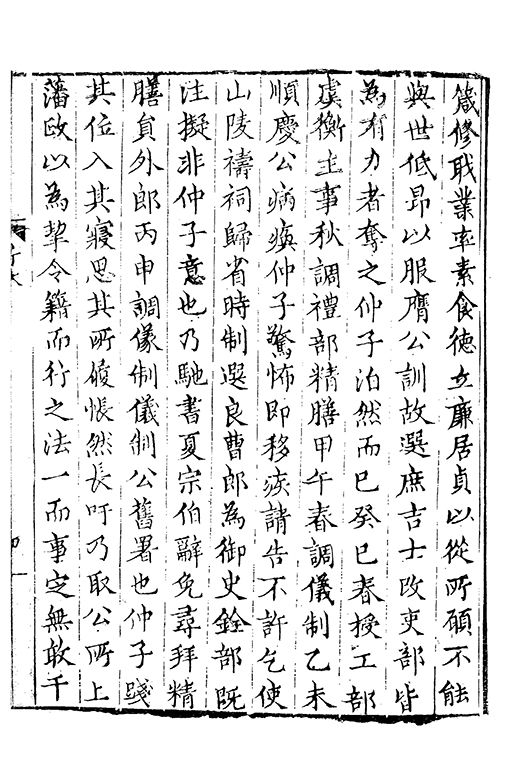 箴修職業率素食德立廉居貞以從所願不能
與世低昂以服膺公訓故選庶吉士改吏部皆
為有力者奪之仲子泊然而已癸巳春授工部
虞衡主事秋調禮部精膳甲午春調儀制乙未
順慶公病瘓仲子驚怖即移疾請告不許乞使
山陵禱祠歸省時制選良曹郎為御史銓部既
注擬非仲子意也乃馳書夏宗伯辭免尋拜精
膳員外郎丙申調儀制儀制公舊署也仲子踐
其位入其寢思其所履悵然長吁乃取公所上
藩政以為挈令籍而行之法一而事定無敢干